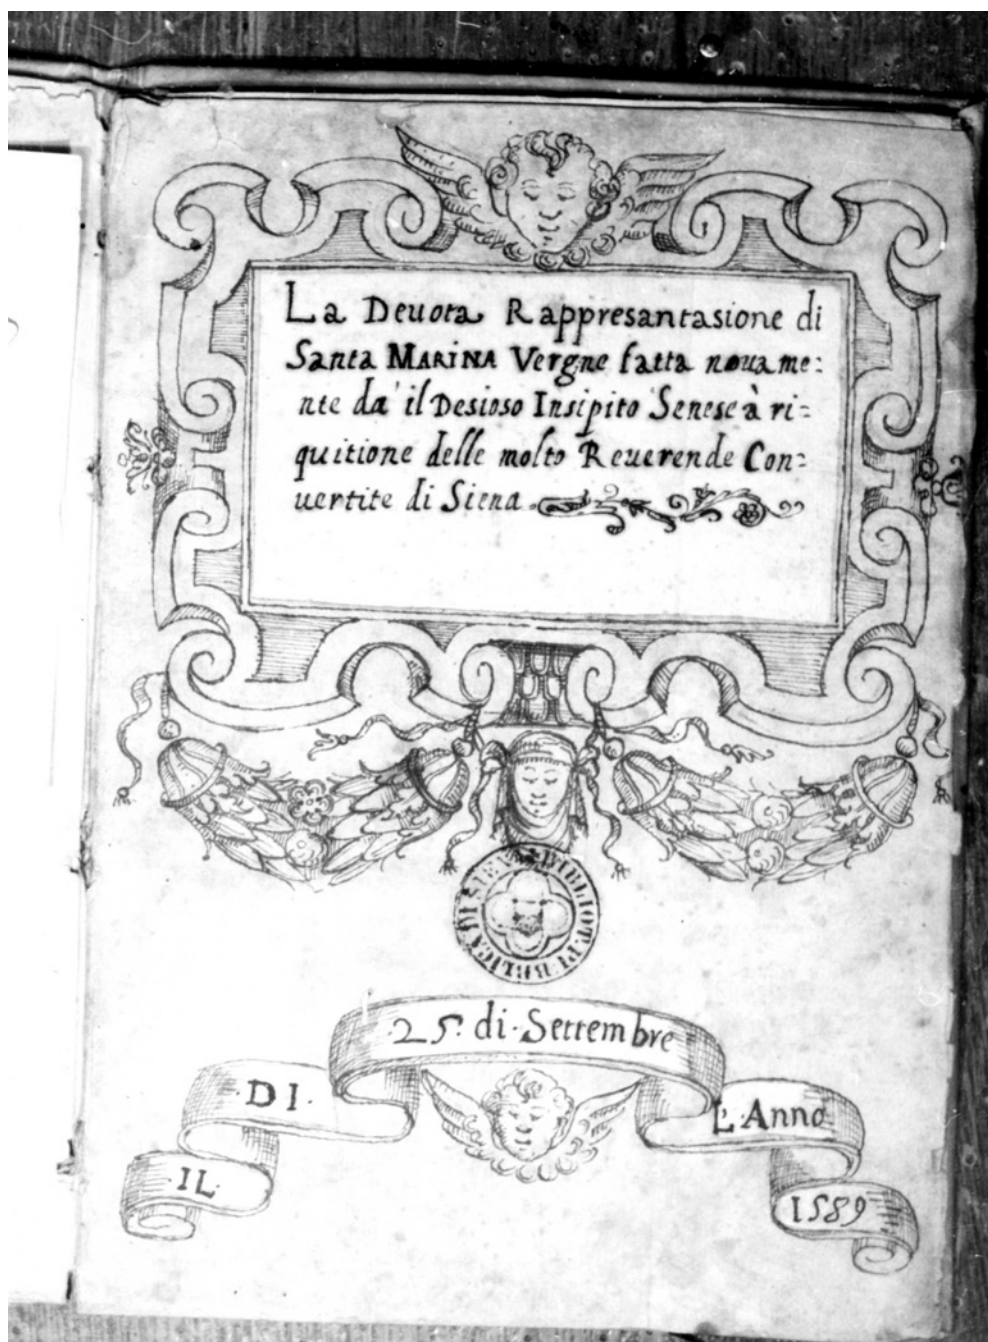 La Deuota Rappresantasione di
Santa MARINA Vergne fatta nouame:
nte da' il Desioso Insipito Senese à ri=
quitione delle molto Reuerende Con=
uertite di Siena
BIBLIOT. PUBBLICA DI SIENA
25. di Settembre
DI.
L'Anno
IL
1589